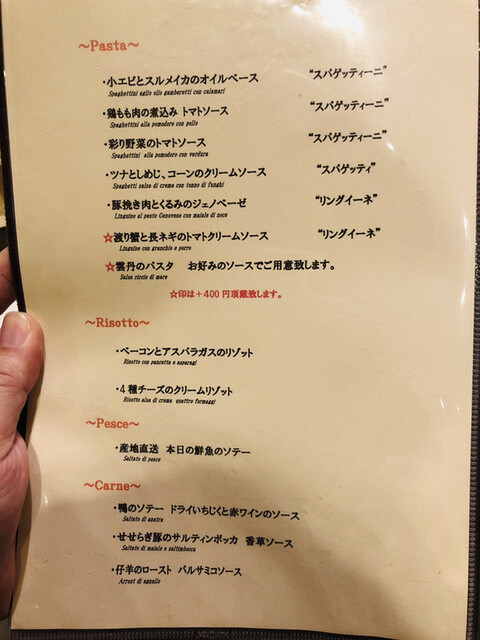 ～Pasta～
・小エビとスルメイカのオイルベース　“スパゲッティーニ”
Spaghettini aglio olio gamberetti con calamari
・鶏もも肉の煮込み トマトソース　“スパゲッティーニ”
Spaghettini alla pomodoro con pollo
・彩り野菜のトマトソース　“スパゲッティーニ”
Spaghettini alla pomodoro con verdura
・ツナとしめじ、コーンのクリームソース　“スパゲッティ”
Spaghetti salsa di crema con tonno di funghi
・豚挽き肉とくるみのジェノベーゼ　“リングイーネ”
Linguine al pesto Genovese con maiale di noce
☆渡り蟹と長ネギのトマトクリームソース　“リングイーネ”
Linguine con granchio e porro
☆雲丹のパスタ　お好みのソースでご用意致します。
Salsa riccio di mare
☆印は＋400 円頂戴致します。
～Risotto～
・ベーコンとアスパラガスのリゾット
Risotto con pancetta e asparagi
・4 種チーズのクリームリゾット
Risotto alsa di crema quattro formaggi
～Pesce～
・産地直送 本日の鮮魚のソテー
Saltato di pesce
～Carne～
・鴨のソテー ドライいちじくと赤ワインのソース
Saltato di anatra
・せせらぎ豚のサルティンボッカ 香草ソース
Saltato di maiale e saltimbocca
・仔羊のロースト バルサミコソース
Arrost di agnello